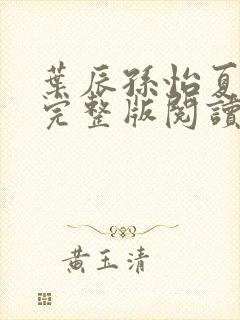 葉辰孫怡夏
完整版閱讀
黃玉清